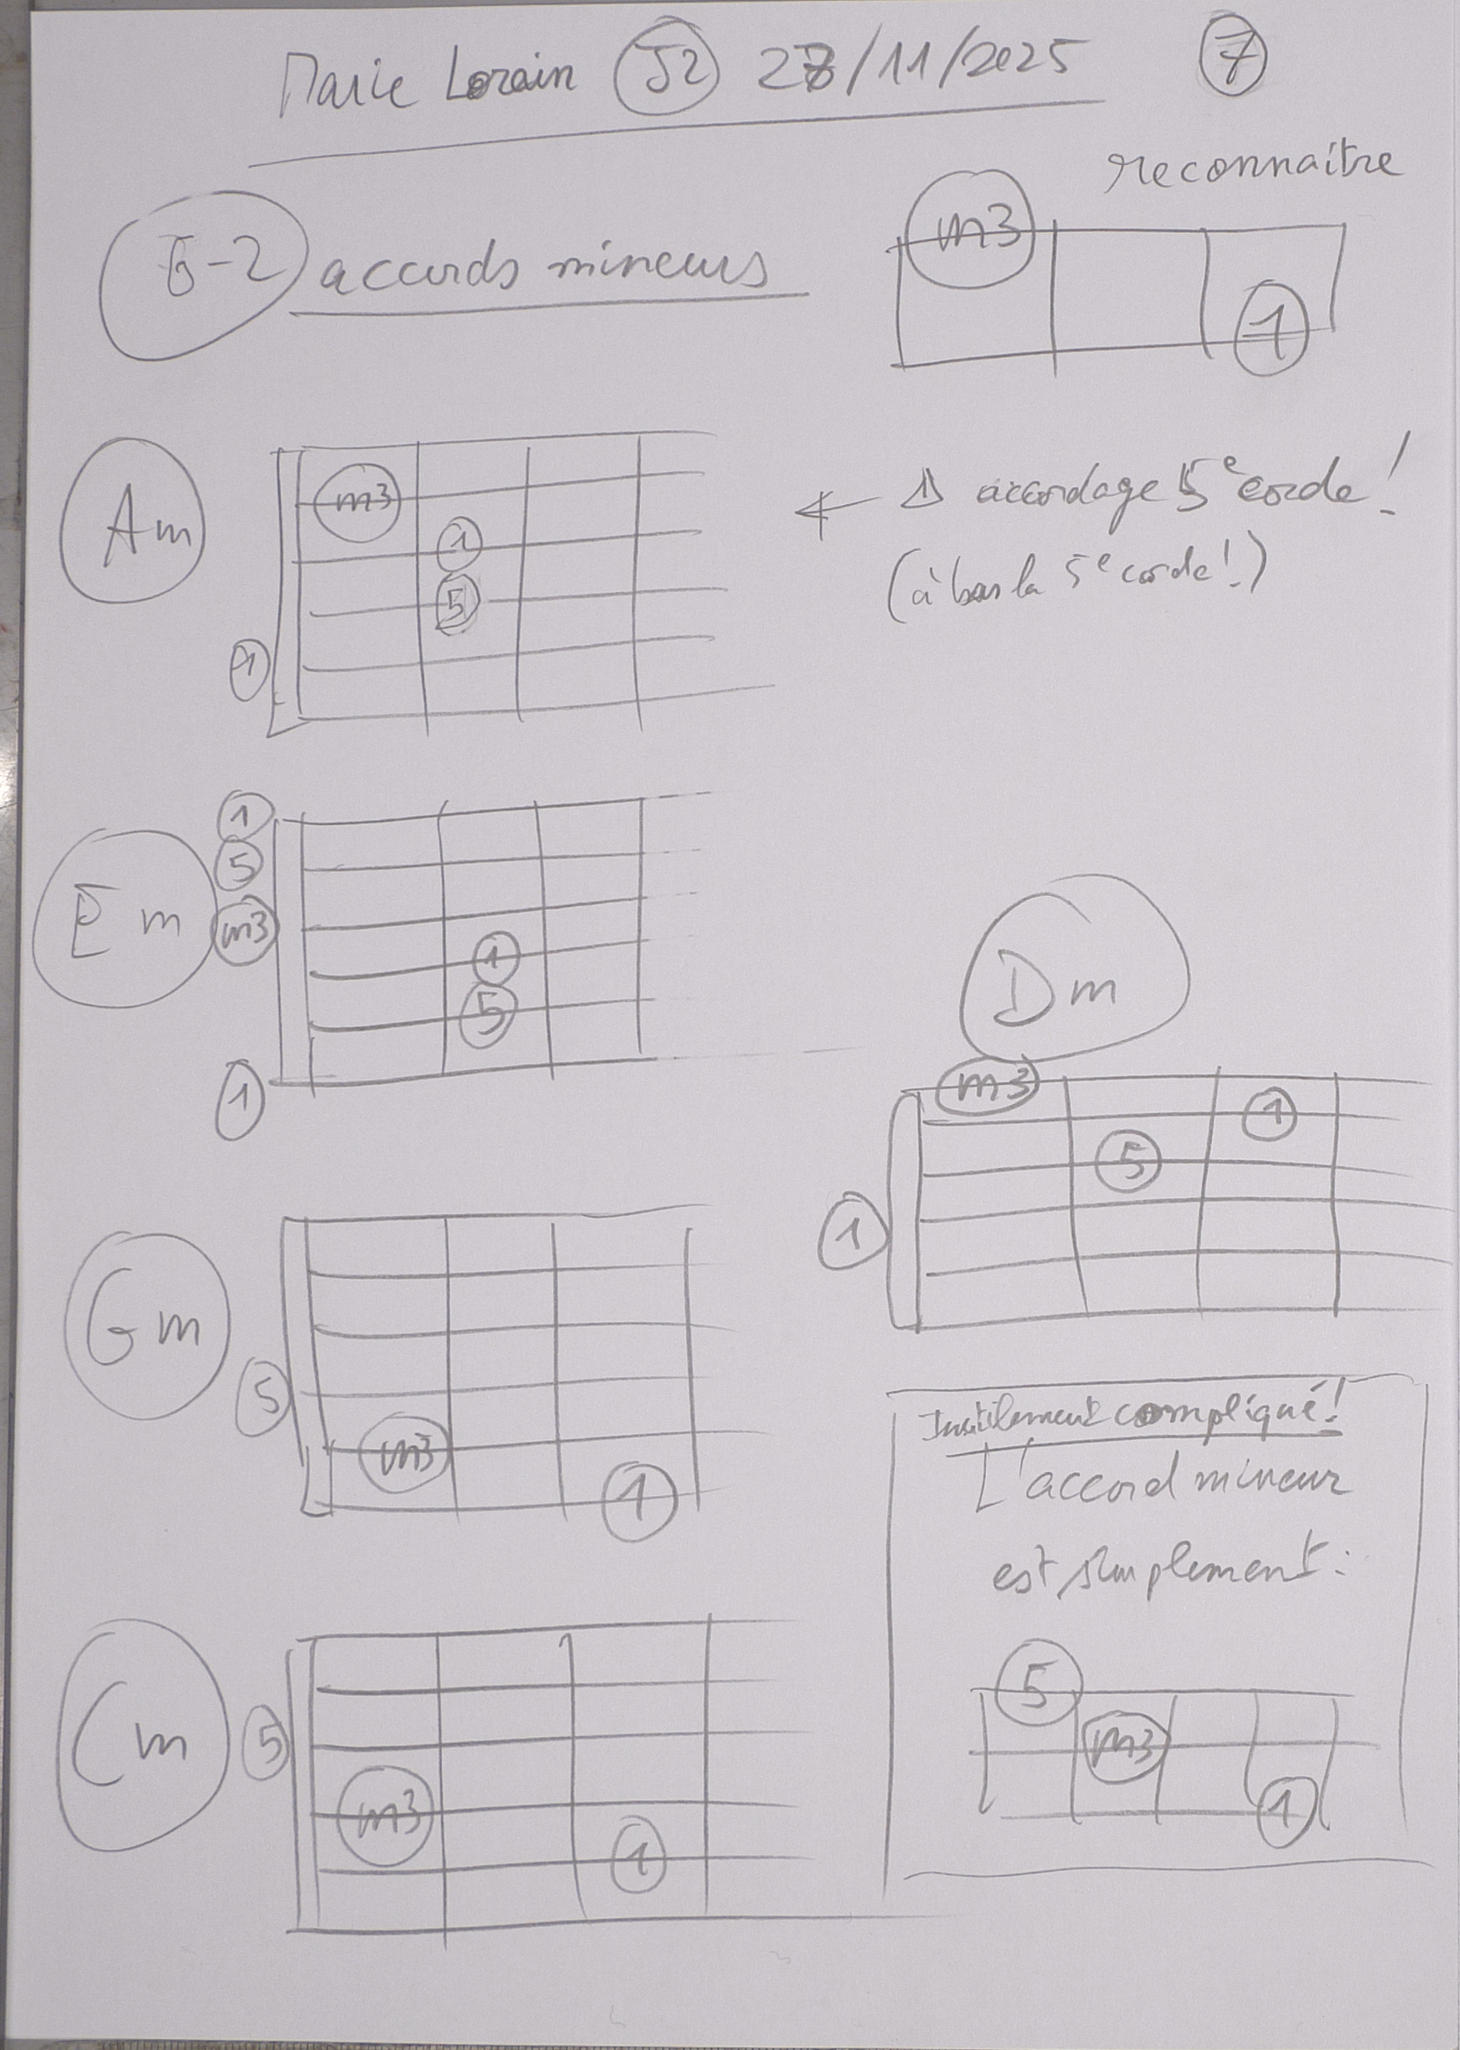 Marie Lorain J2 27/11/2025 7
reconnaitre
m3
1
6-2 accords mineurs
Am
m3
1
5
1
← ⚠ accordage 5e corde !
(à bas la 5e corde !)
Em
1
5
m3
1
5
1
Dm
m3
1
5
1
Gm
5
m3
1
Inutilement compliqué !
L'accord mineur
est simplement :
5
m3
1
Cm
5
m3
1